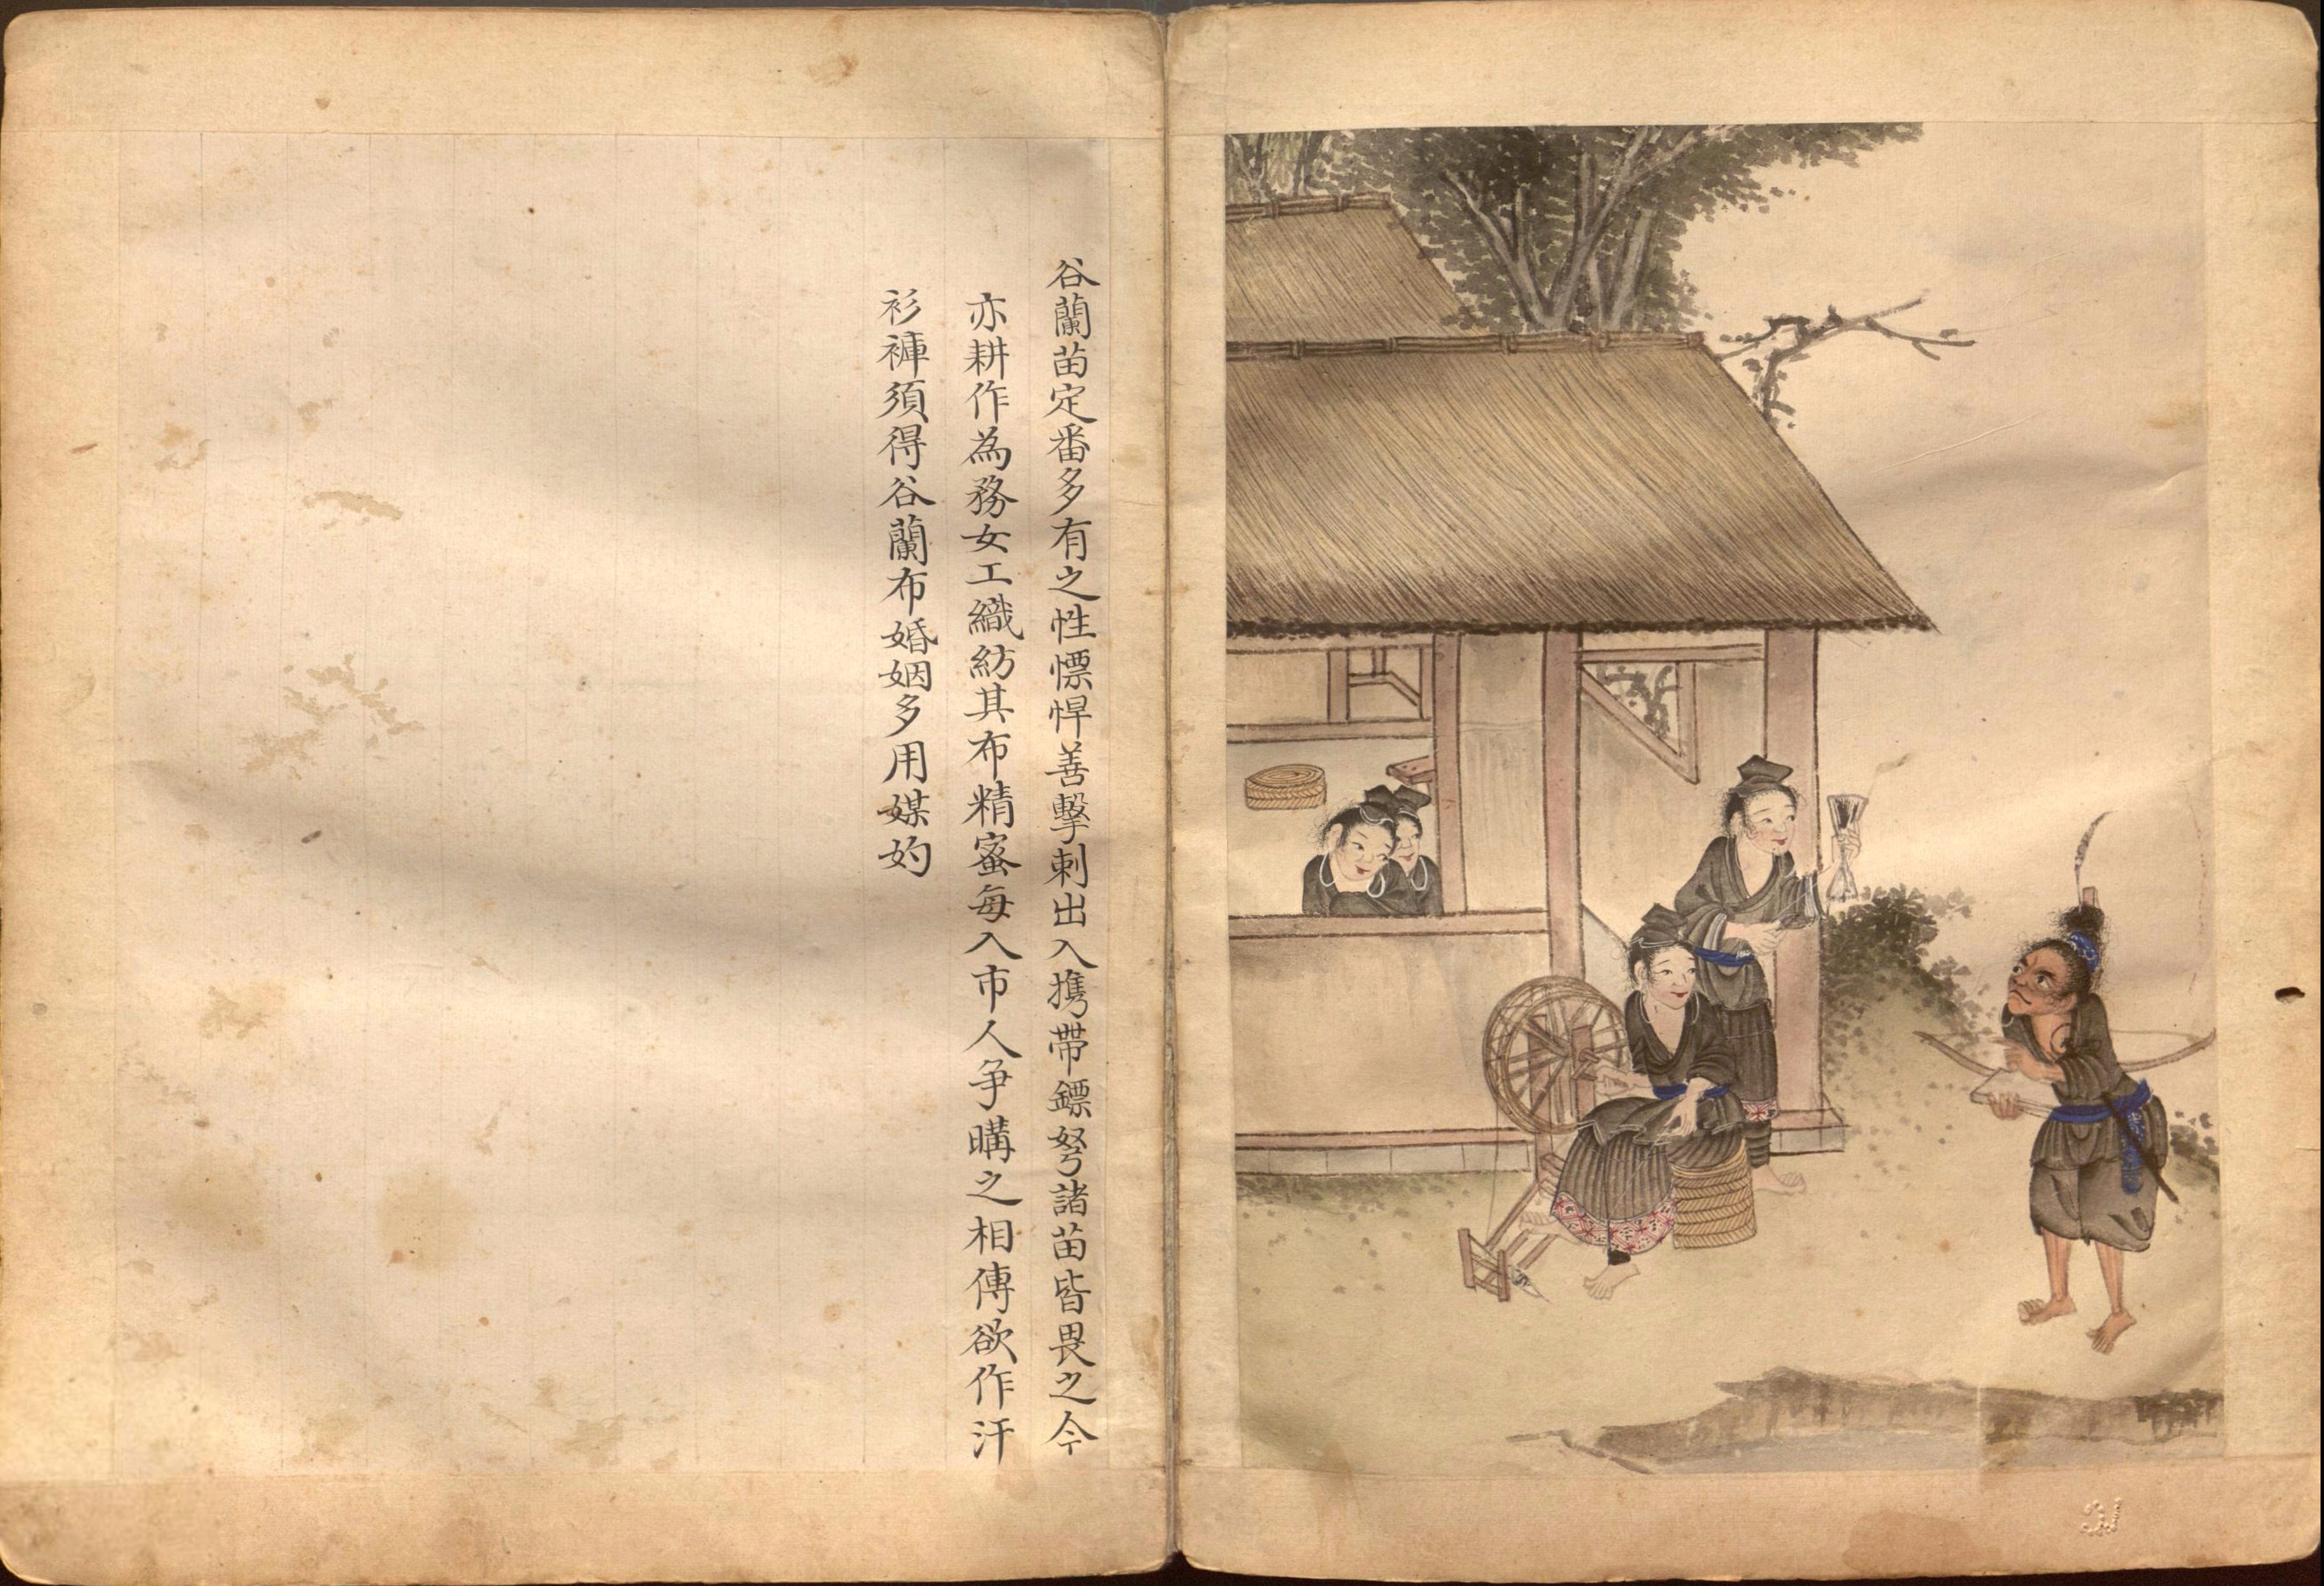 谷蘭苗定番多有之性慓悍善擊刺出入攜帶鏢弩諸苗皆畏之今
亦耕作為務女工織紡其布精密每入市人爭購之相傳欲作汗
衫褲須得谷蘭布婚姻多用媒妁